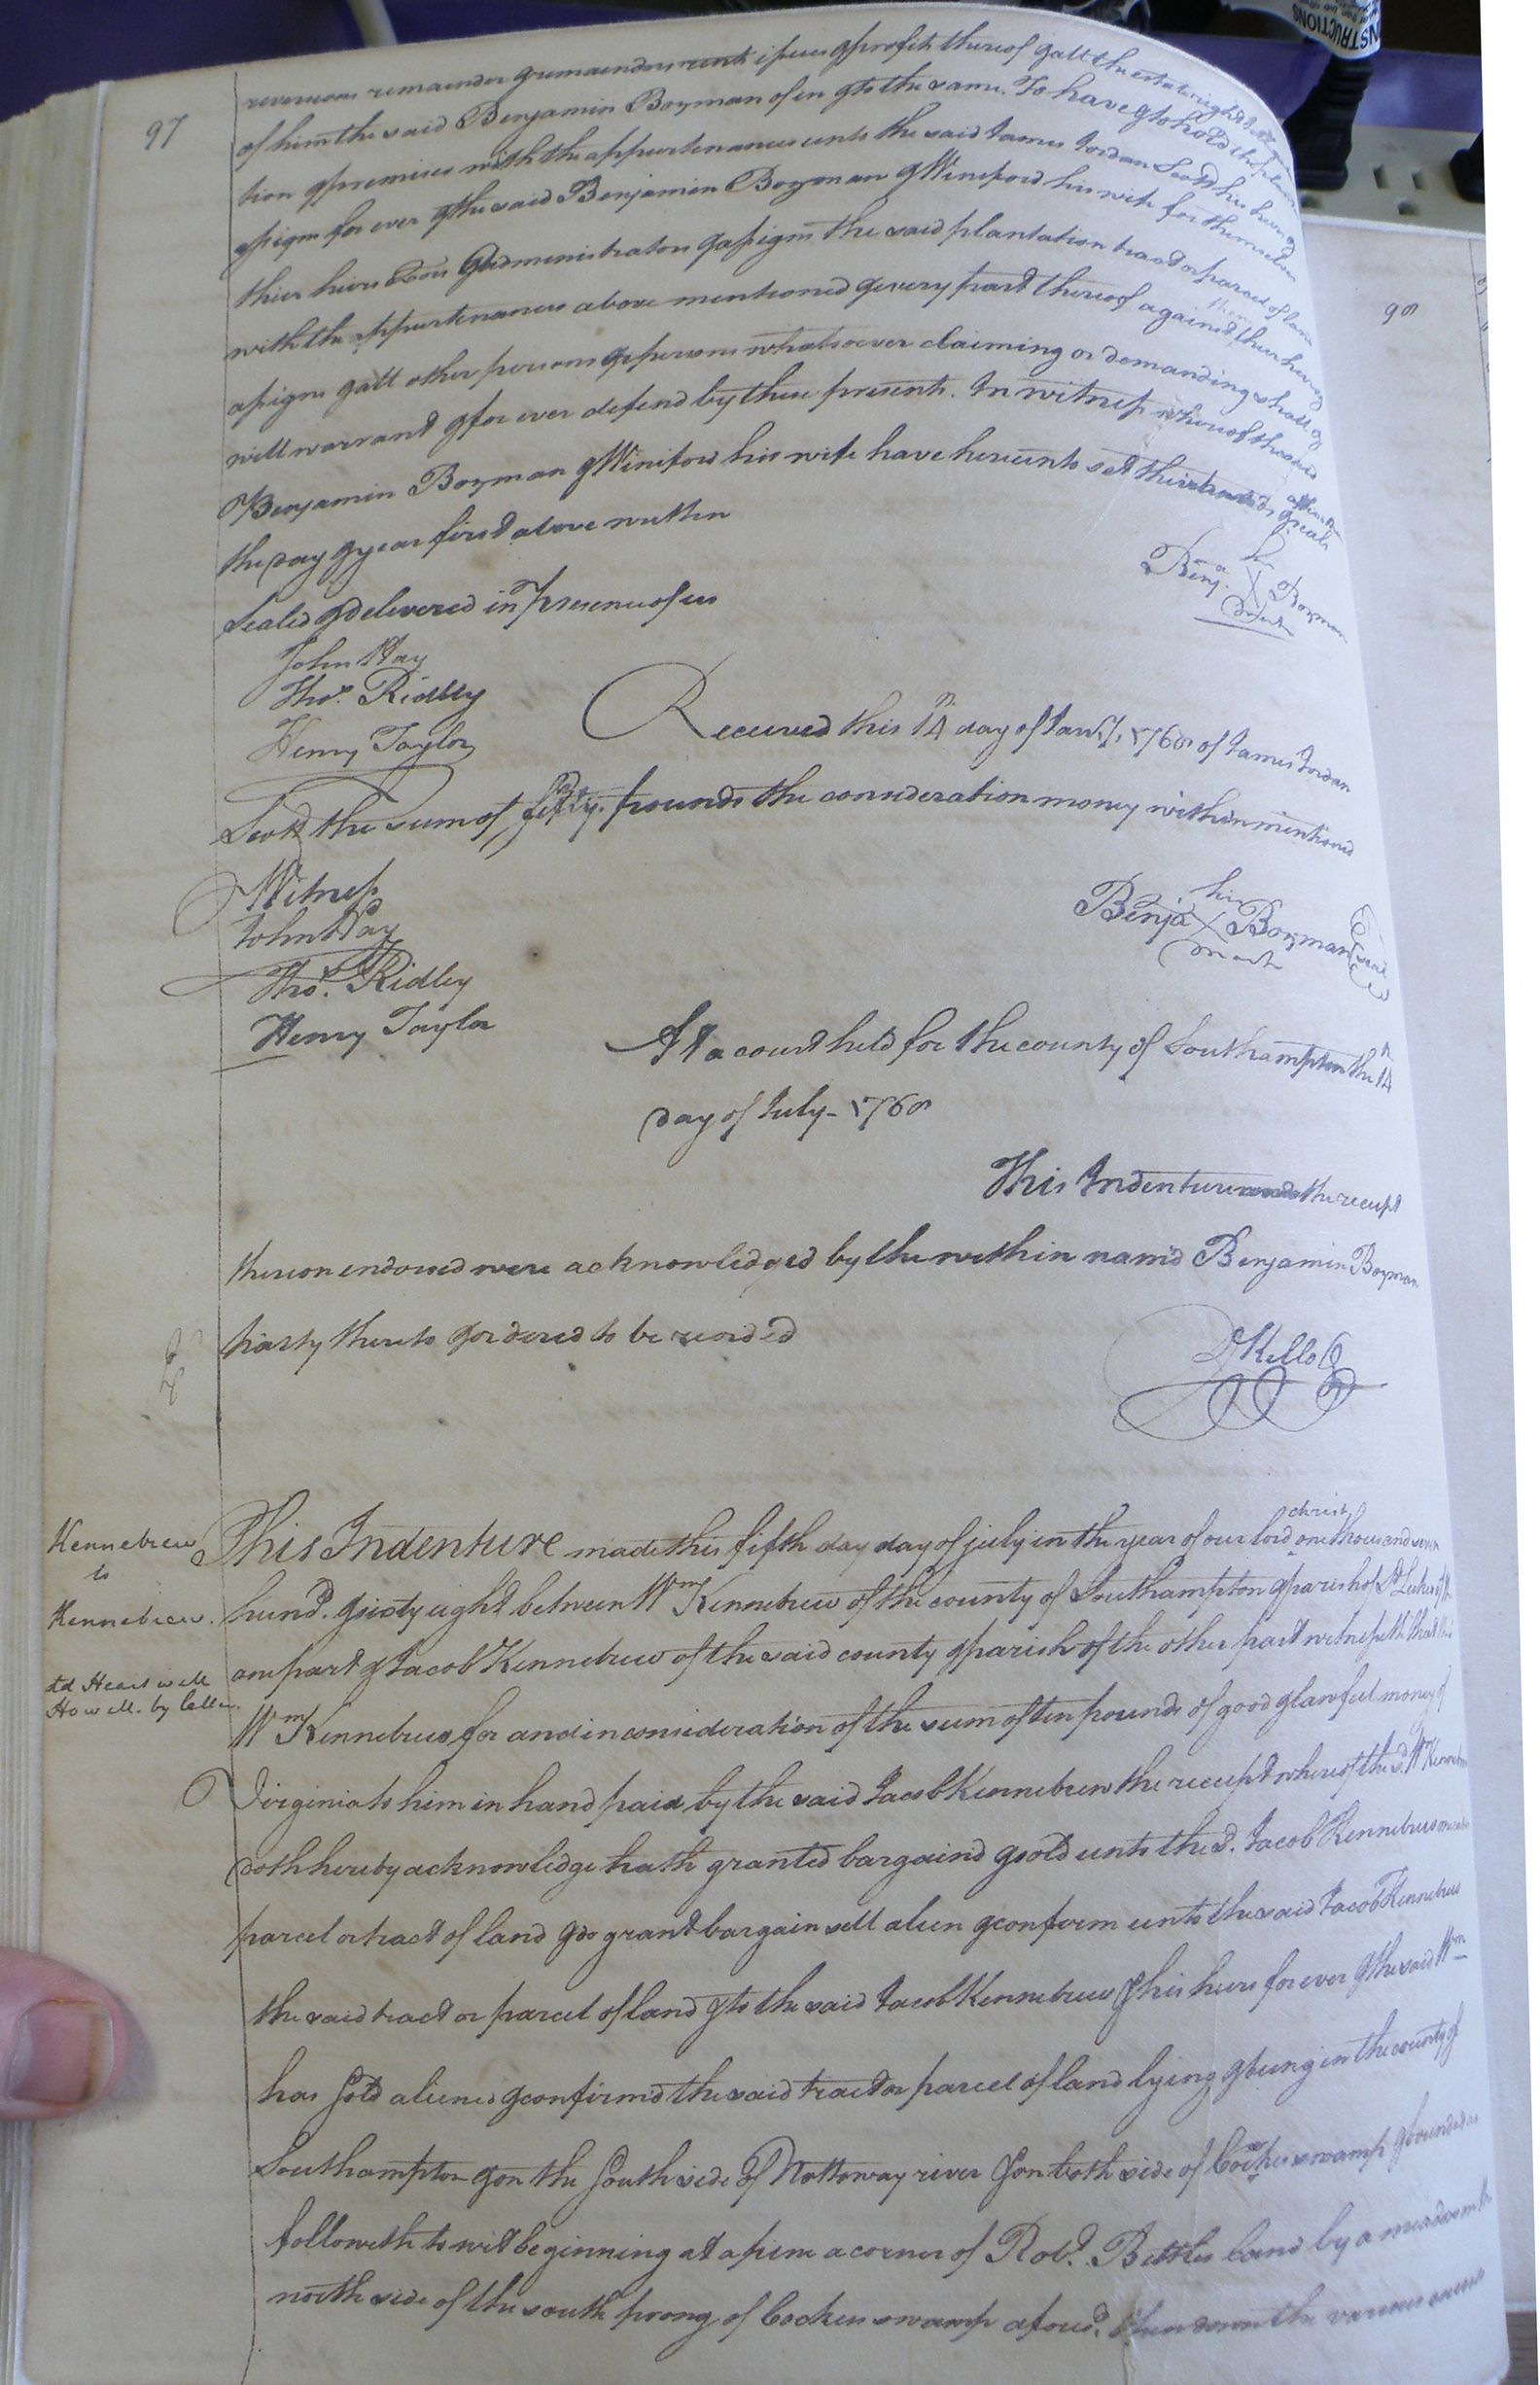 97
reversions remainder & remainders rents issues & profits thereof & all the estate right & title
of him the said Benjamin Bozman of in & to the same. To have & to hold the planta
tion & premises with the appurtenances unto the said James Jordan Scott his heirs &
assigns for ever & the said Benjamin Bozman & Wineford his wife for themselves
thier heirs Exors & administrators & assigns the said plantation tract or parcel of land
with the appurtenances above mentioned & every part thereof against them their heirs &
assigns & all other persons & persons whatsoever claiming or demanding shall &
will warrant & for ever defend by these presents. In witness whereof the said
Benjamin Bozman & Winiford his wife have hereunto set their hands & seals
the day & year first above written
Sealed & delivered in Presence of us
his
Benja. X Bozman
mark
John Hay
Thos. Ridley
Henry Taylor
Received this 14 day of Jany. 1768 of James Jordan
Scott the sum of fifty. pounds the consideration money within mentioned
Witness
his
Benja X Bozman seal
mark
John Hay
Thos. Ridley
Henry Taylor
At a court held for the county of Southampton the 14th
day of July - 1768
This Indenture and the receipt
thereon endorsed were acknowledged by the within namd Benjamin Bozman
party thereto & ordered to be recorded
D Kello
98
Kennebrew
to
Kennebrew.
dd Heartwell
Howell. by letter.
christ
This Indenture made this fifth day day of july in the year of our lord one thousand seven
hund. & sixty eight between Wm Kennebrew of the county of Southampton & parish of St Lukes of the
one part & Jacob Kennebrew of the said county & parish of the other part witnesseth that
Wm Kennebrew for and in consideration of the sum of ten pounds of good & lawful money of
Virginia to him in hand paid by the said Jacob Kennebrew the receipt whereof the sd. Wm Kennebrew
doth hereby acknowledge hath granted bargaind & sold unto the sd. Jacob Kennebrew
parcel or tract of land & do grant bargain sell alien & confirm unto the said Jacob Kennebrew
the said tract or parcel of land & to the said Jacob Kennebrew & his heirs for ever & the said Wm
has sold aliened & confirmd the said tract or parcel of land lying & being in the county of
Southampton & on the South side of Nottoway river & on both side of Cockes swamp & bounded as
followeth to wit beginning at a pine a corner of Robt. Bittles land by a meadow
north side of the south prong of Cockes swamp afoused. then down the various